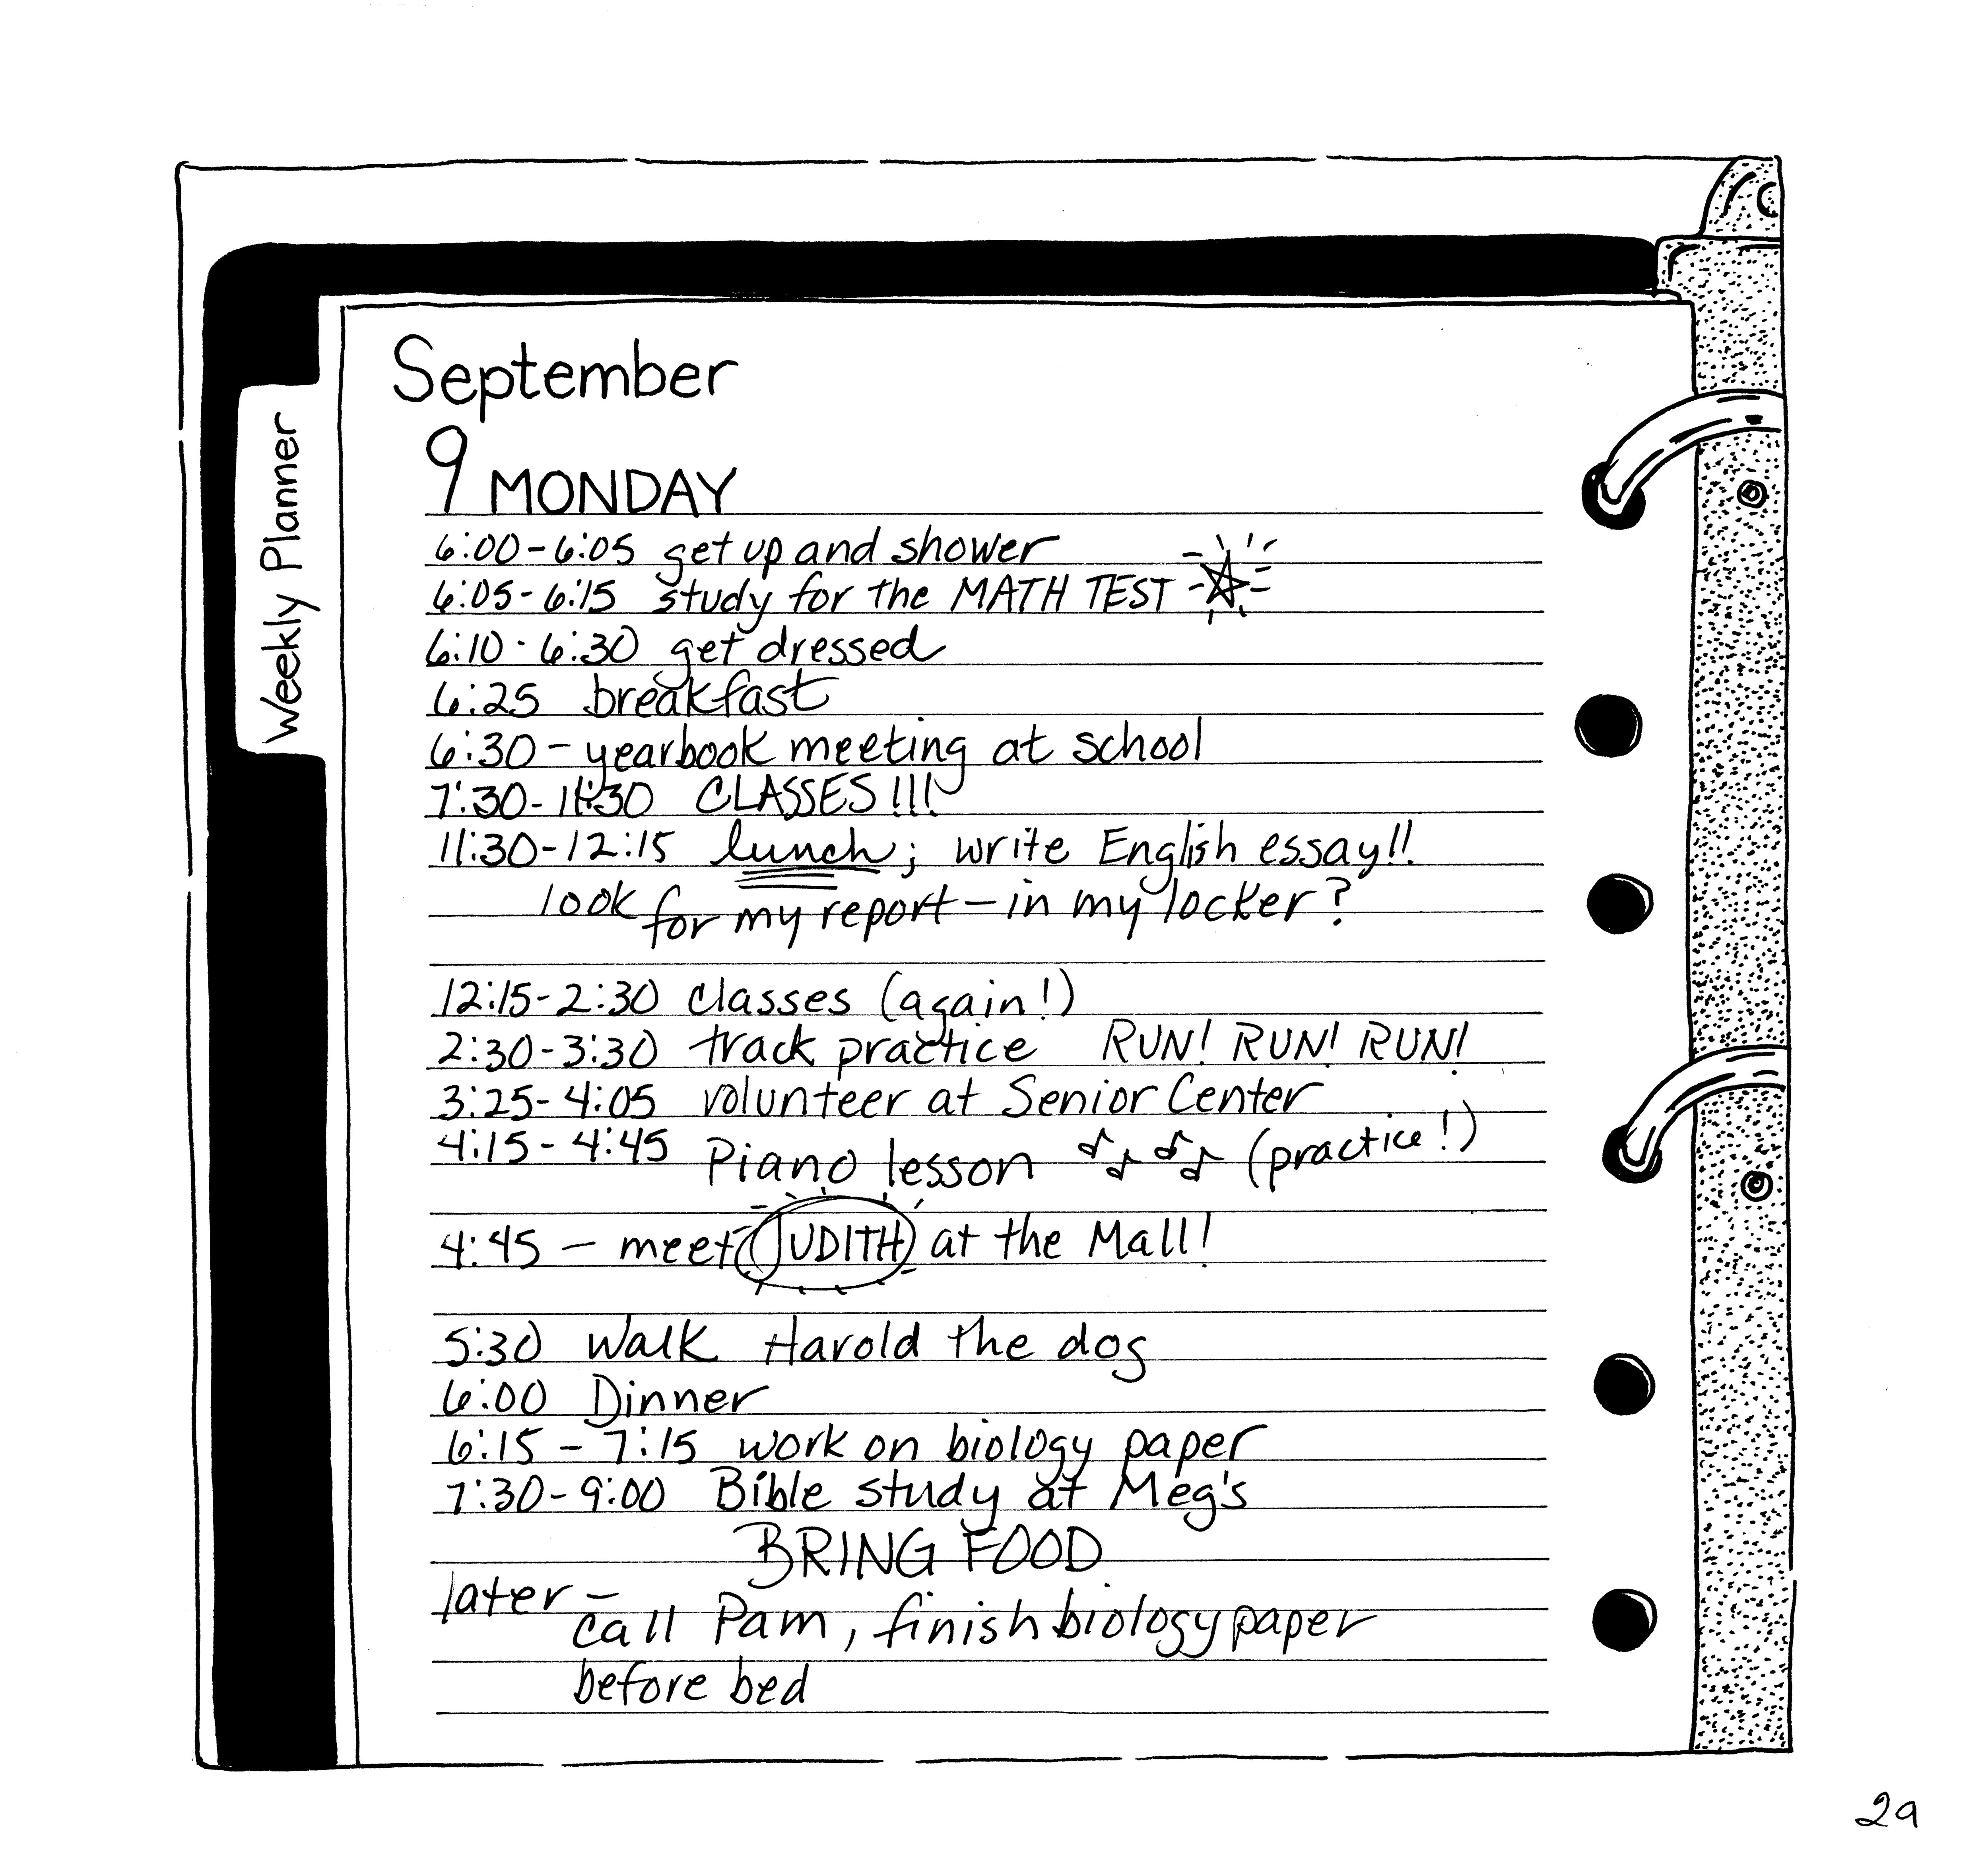 September
9 MONDAY
Weekly Planner
6:00-6:05 get up and shower
6:05-6:15 study for the MATH TEST
6:10-6:30 get dressed
6:25 breakfast
6:30 - yearbook meeting at school
7:30-11:30 CLASSES!!!
11:30-12:15 lunch; write English essay!!
look for my report - in my locker?
12:15-2:30 classes (again!)
2:30-3:30 track practice RUN! RUN! RUN!
3:25-4:05 volunteer at Senior Center
4:15-4:45 Piano lesson ♪♪♪♪ (practice!)
4:45 - meet JUDITH at the Mall!
5:30 Walk Harold the dog
6:00 Dinner
6:15 - 7:15 work on biology paper
7:30-9:00 Bible study at Meg's
BRING FOOD
later -
call Pam, finish biology paper
before bed
29